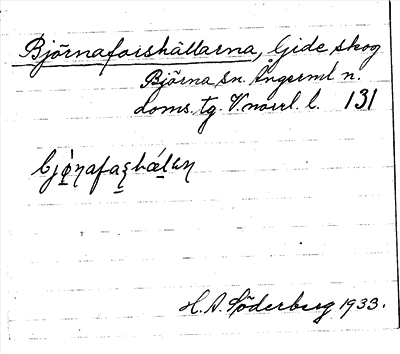 Björnaforshällarna, Gide skog
Björna sn. Ångerml n.
doms. tg. V. norrl. l. 131
H. A. Söderberg 1933.